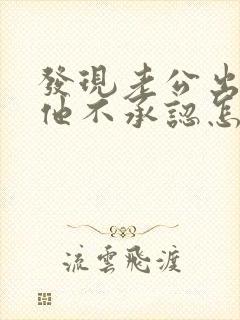 發現老公出
他不承認怎
流雲飛渡